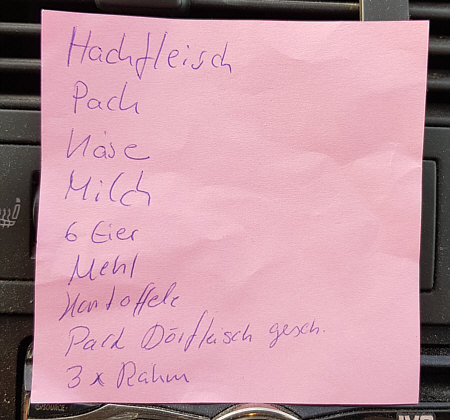 Hackfleisch
Pack
Käse
Milch
6 Eier
Mehl
Kartoffeln
Pack Dörfleisch gesch.
3 x Rahm
SOURCE
JVC